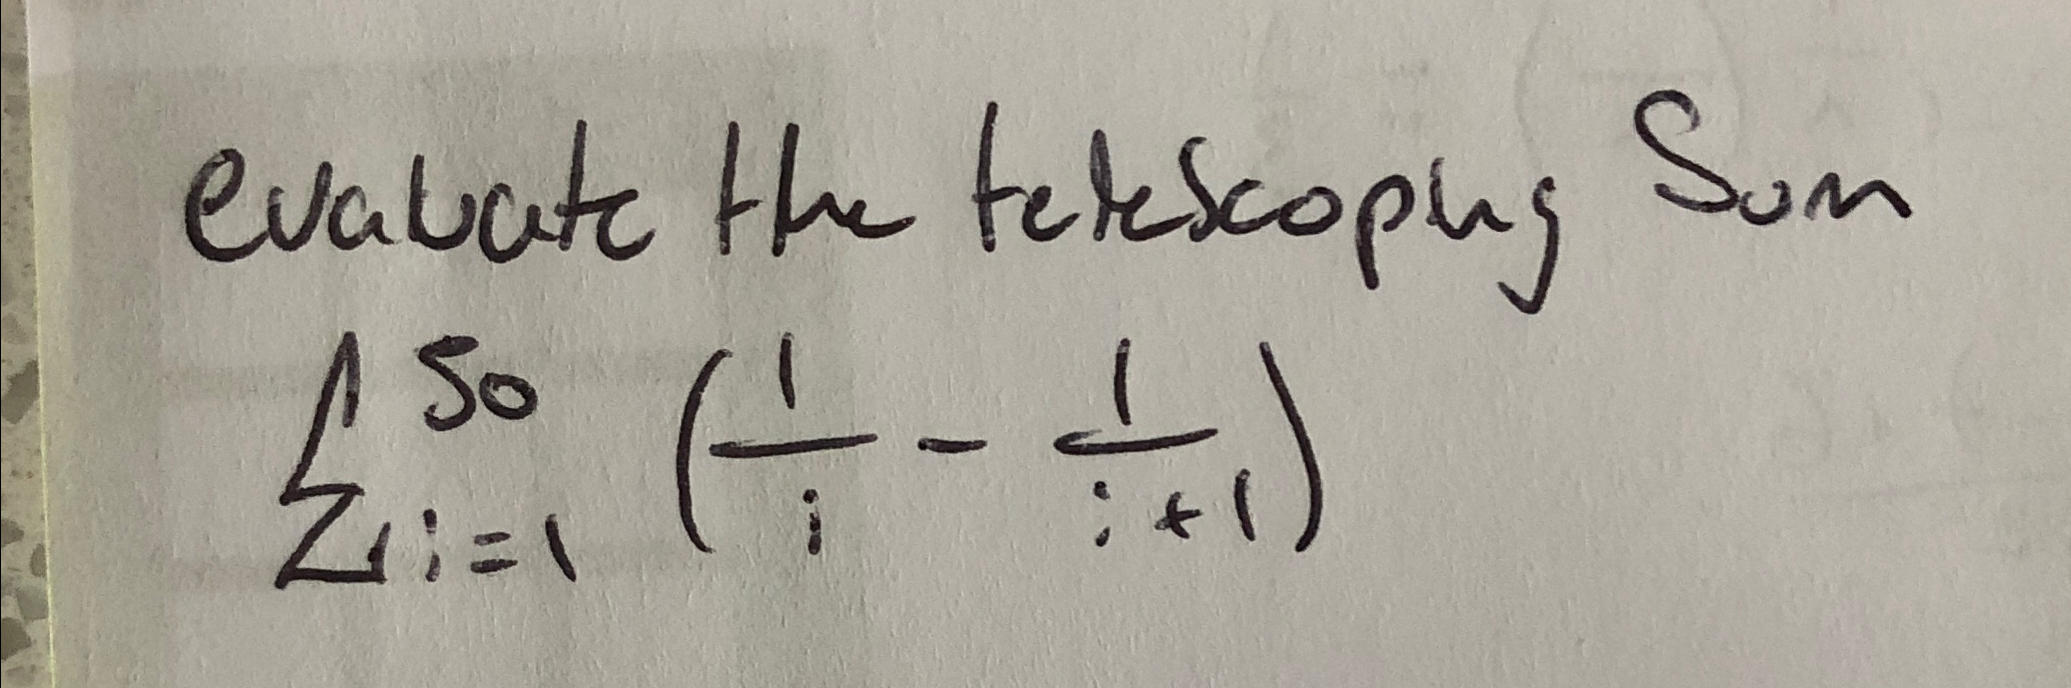 evaluate the telescoping Sum
∑ i=1 50 (1/i - 1/i+1)